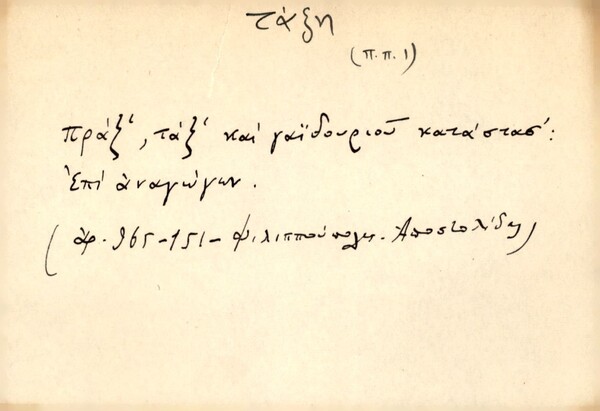 τάξη
(π.π. 1)
πράξ', τάξ' καί γαϊδουριοῦ κατάστασ':
Ἐπί ἀναγώγων.
(ἀρ. 965-151- Φιλιππούπολη. Ἀποστολίδη)